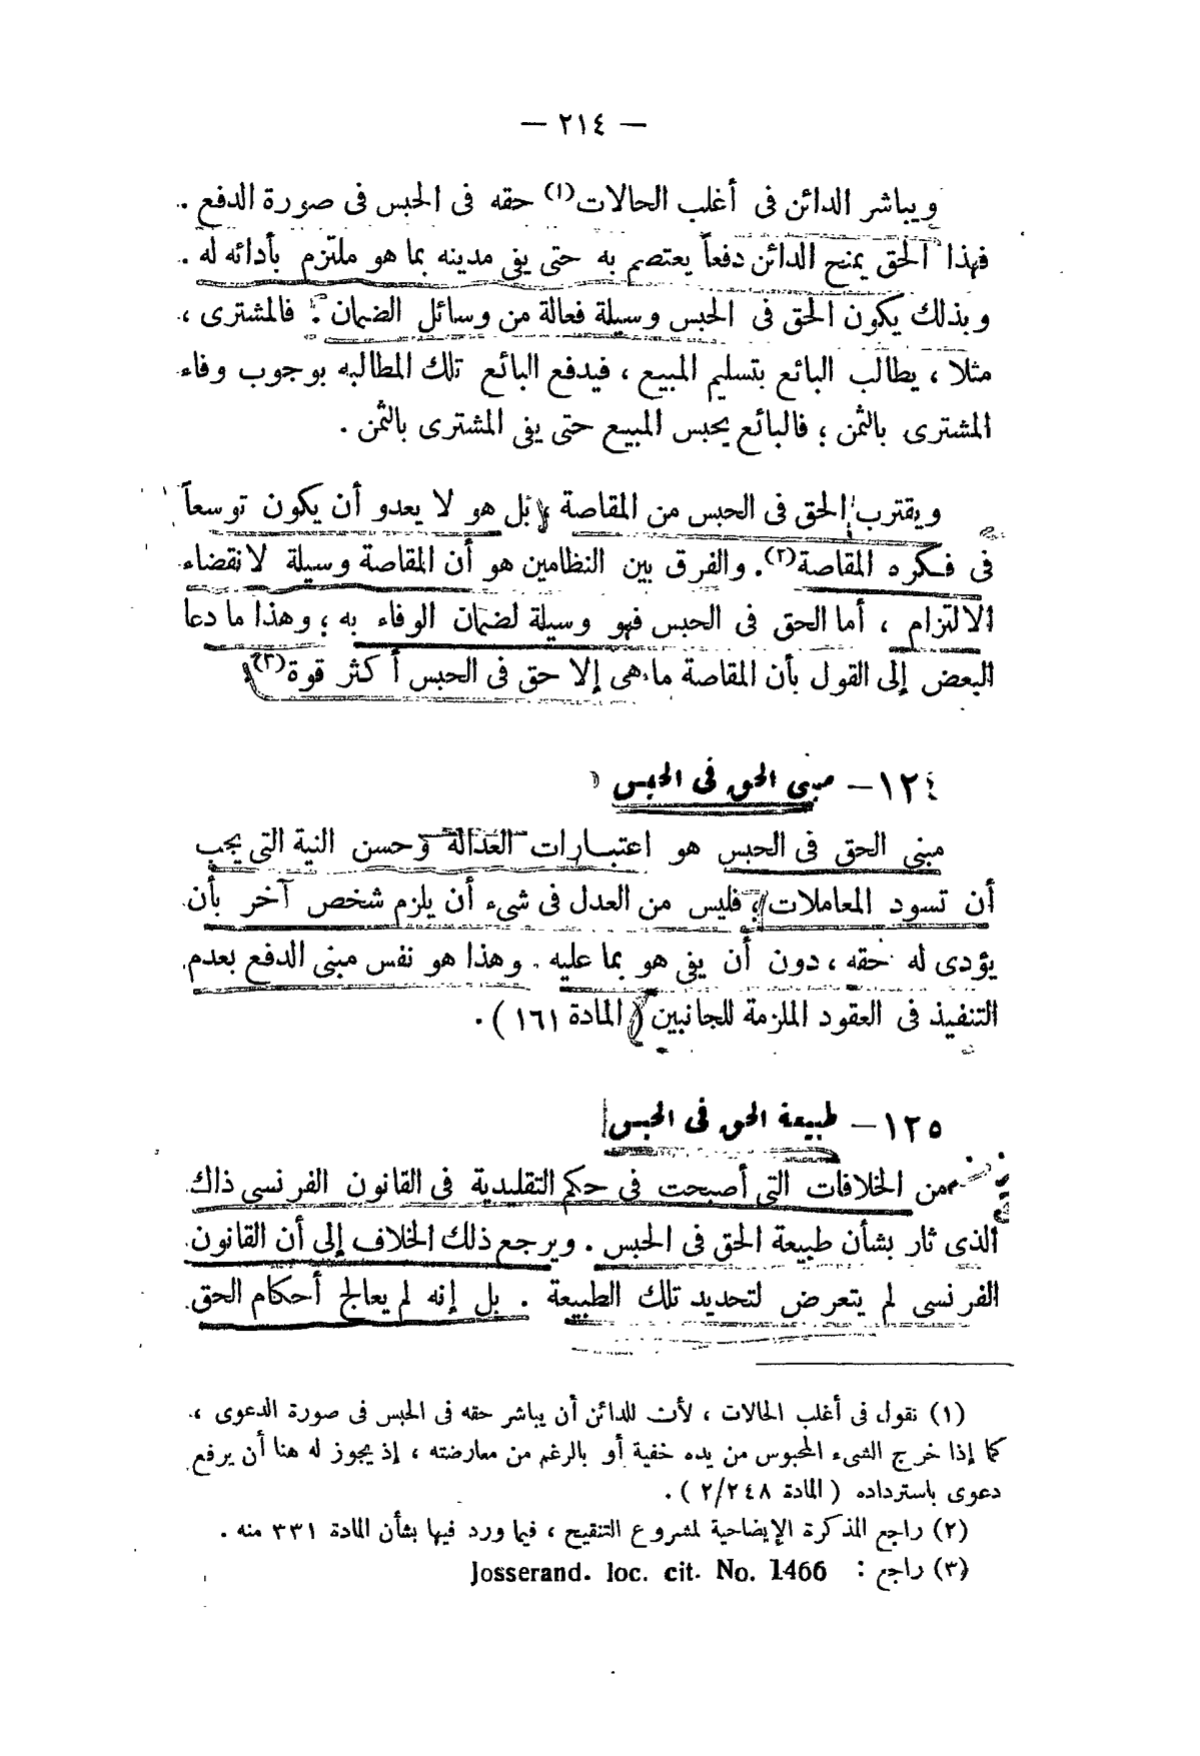 — ٢١٤ —
ويباشر الدائن فى أغلب الحالات(١) حقه فى الحبس فى صورة الدفع .
فهذا الحق يمنح الدائن دفعاً يعتصم به حتى يفى مدينه بما هو ملتزم بأدائه له .
وبذلك يكون الحق فى الحبس وسيلة فعالة من وسائل الضمان . فالمشترى ،
مثلا ، يطالب البائع بتسليم المبيع ، فيدفع البائع تلك المطالبه بوجوب وفاء
المشترى بالثمن ؛ فالبائع يحبس المبيع حتى يفى المشترى بالثمن .
ويقترب الحق فى الحبس من المقاصة ، بل هو لا يعدو أن يكون توسعاً
فى فكره المقاصة(٢). والفرق بين النظامين هو أن المقاصة وسيلة لانقضاء
الالتزام ، أما الحق فى الحبس فهو وسيلة لضمان الوفاء به ؛ وهذا ما دعا
البعض إلى القول بأن المقاصة ما هى إلا حق فى الحبس أكثر قوة(٣).
١٢٤ – مبنى الحق فى الحبس
مبنى الحق فى الحبس هو اعتبارات العدالة وحسن النية التى يجب
أن تسود المعاملات ؛ فليس من العدل فى شىء أن يلزم شخص آخر بأن
يؤدى له حقه ، دون أن يفى هو بما عليه . وهذا هو نفس مبنى الدفع بعدم
التنفيذ فى العقود الملزمة للجانبين ( المادة ١٦١ ) .
١٢٥ – طبيعة الحق فى الحبس
من الخلافات التى أصبحت فى حكم التقليدية فى القانون الفرنسى ذاك
الذى ثار بشأن طبيعة الحق فى الحبس . ويرجع ذلك الخلاف إلى أن القانون
الفرنسى لم يتعرض لتحديد تلك الطبيعة . بل إنه لم يعالج أحكام الحق
(١) نقول فى أغلب الحالات ، لأن للدائن أن يباشر حقه فى الحبس فى صورة الدعوى ،
كما إذا خرج الشىء المحبوس من يده خفية أو بالرغم من معارضته ، إذ يجوز له هنا أن يرفع
دعوى باسترداده ( المادة ٢/٢٤٨ ) .
(٢) راجع المذكرة الإيضاحية لمشروع التنقيح ، فيما ورد فيها بشأن المادة ٣٣١ منه .
(٣) راجع : Josserand. loc. cit. No. 1466